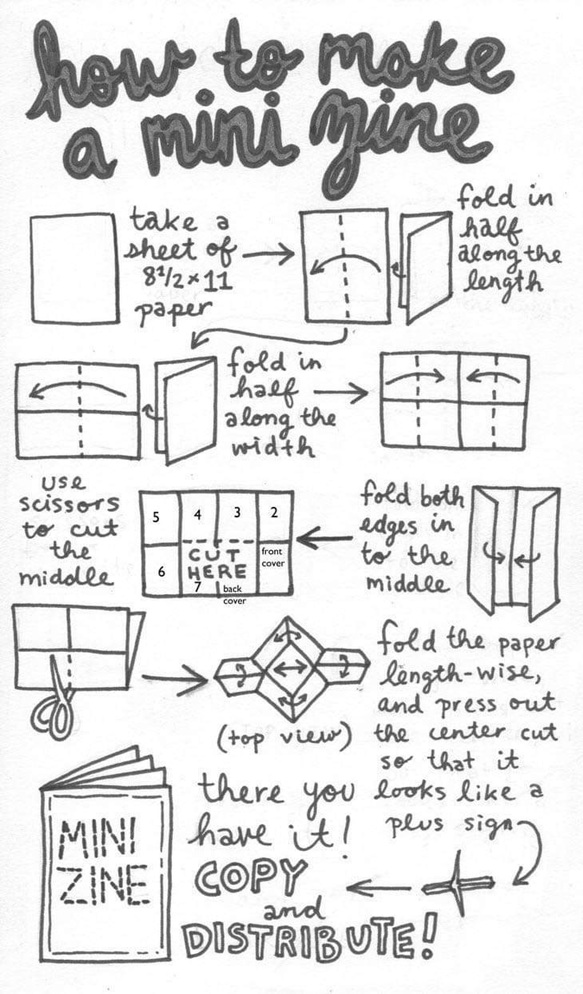 how to make
a mini zine
take a
sheet of
8½ x 11
paper
fold in
half
along the
length
fold in
half
along the
width
fold both
edges in
to the
middle
5 4 3 2
CUT
HERE
6 7
front
cover
back
cover
use
scissors
to cut
the
middle
(top view)
fold the paper
length-wise,
and press out
the center cut
so that it
looks like a
plus sign
there you
have it!
COPY
and
DISTRIBUTE!
MINI
ZINE